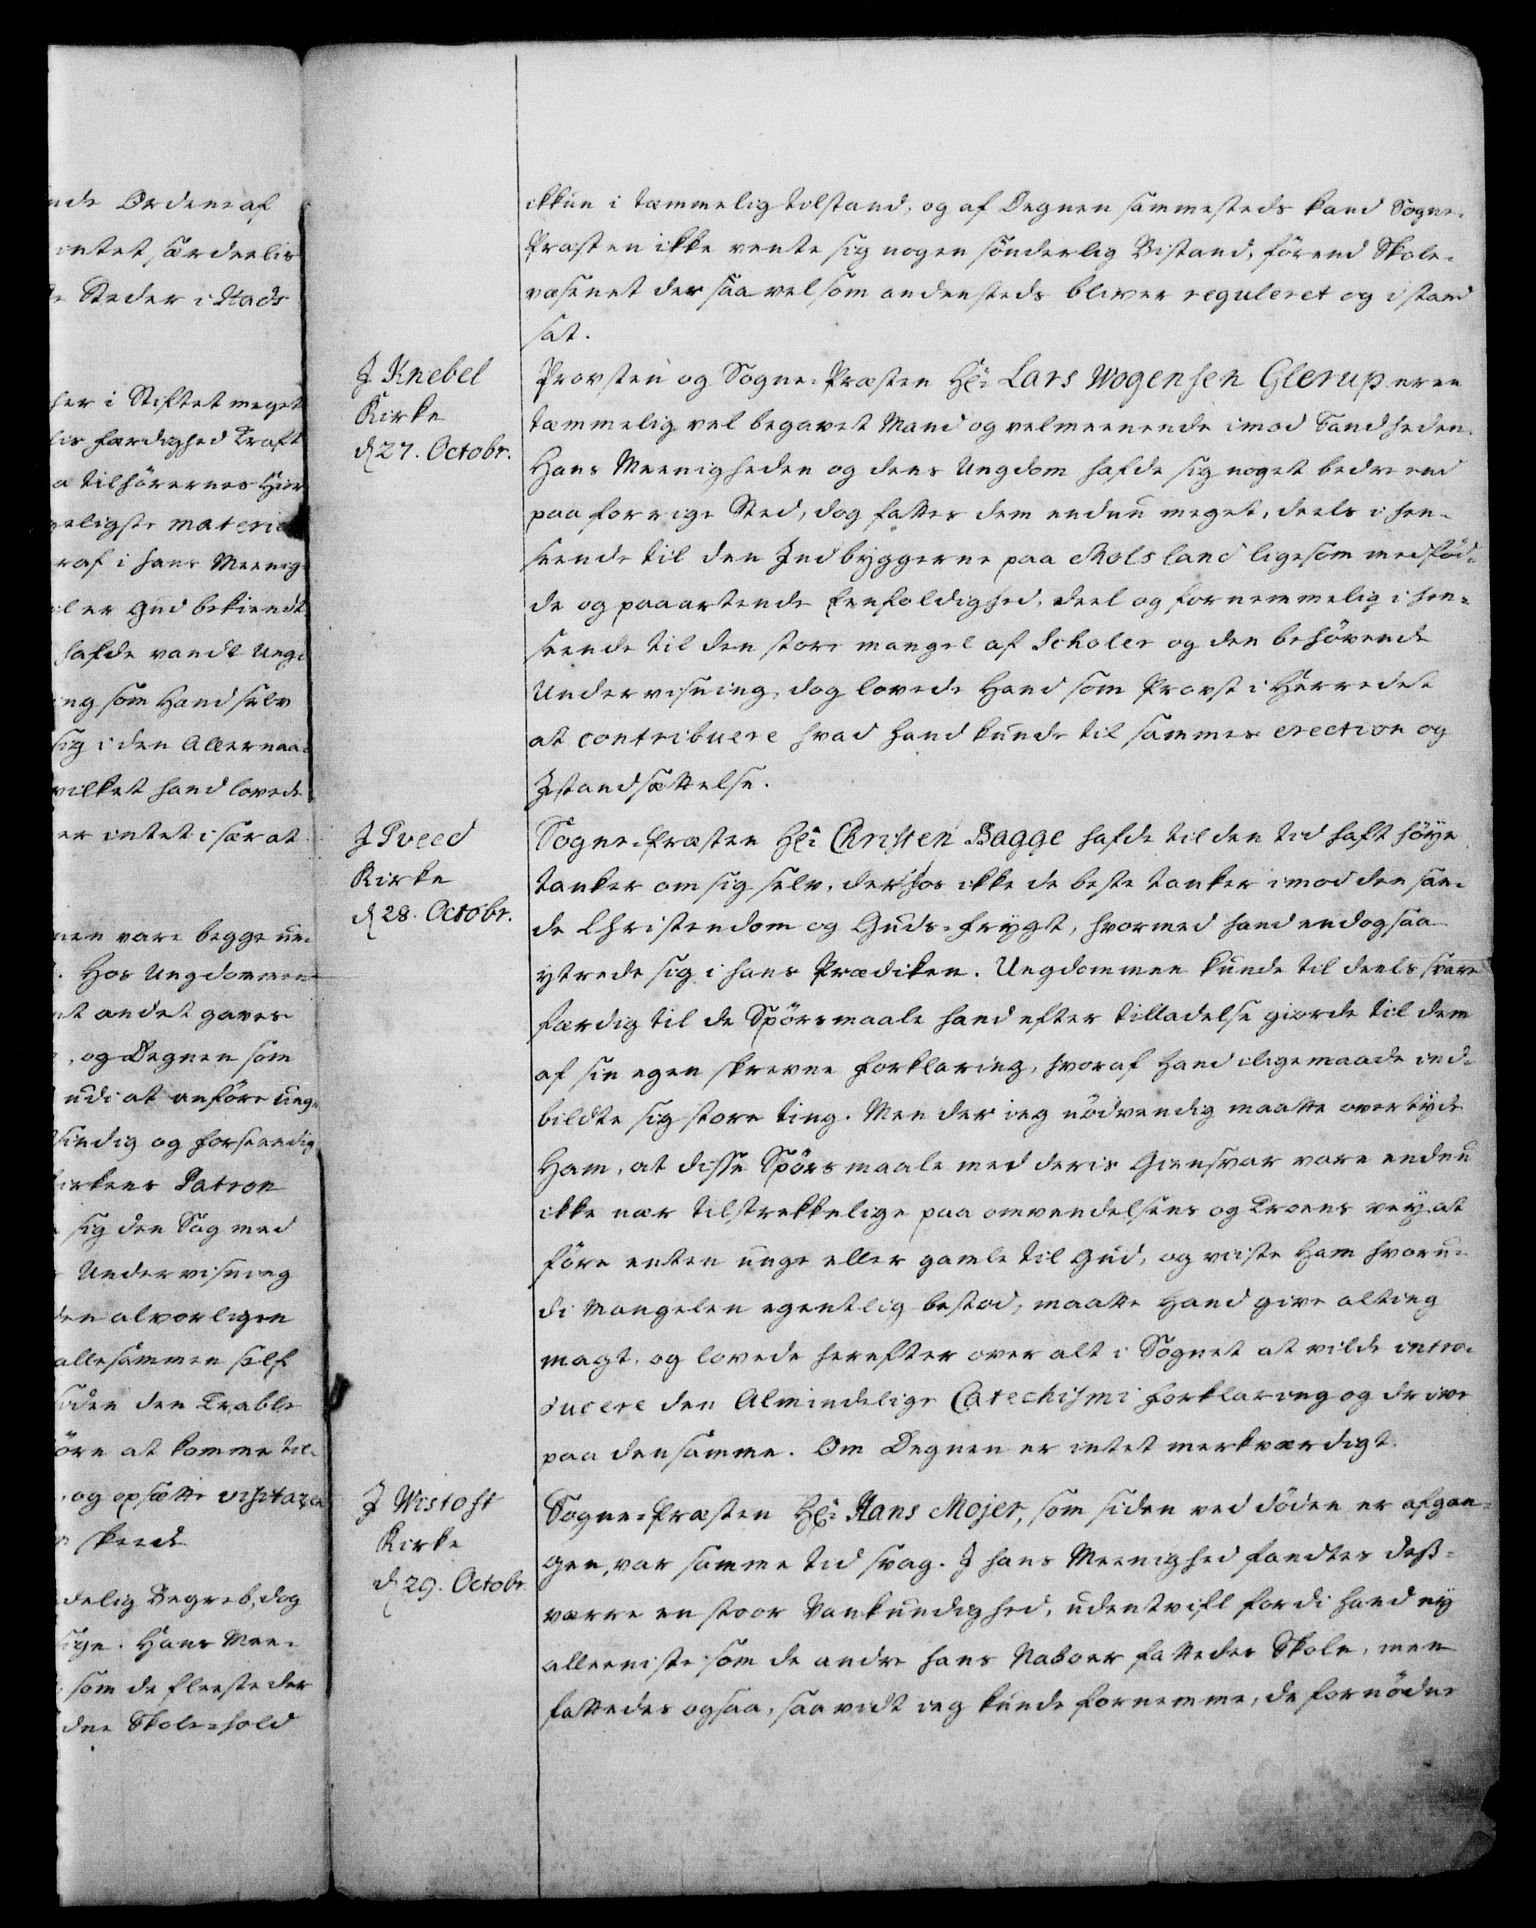 nde Ordene af
intet særdeelis
e Steder i Stads
her i Stiftet meget
lis færdighed Kraft
a tilhörernes Hier
eligste materie
raf i hans Meenig
l er Gud bekiendt
hafde vandt Ung
ing som Hand selv
sig i den Allernaa-
vilket hand lovede
er intet i sær at
nen vare begge un-
. Hos Ungdommen
t andet gaves
, og Degnen som
udi at anföre ung-
sindig og forstandig
Kirkens Patron
sig den Sag med
Undervisning
den alvorligen
allesammen self
siden den Trable
öre at komme til-
, og opsætte visitazen
skeede
delig Begreb, dog
sige. Hans Mee-
som de fleeste der
den Skole-hold
ikkun i temmelig tilstand, og af Degnen sammesteds kand Sogne-
Præsten ikke vente sig nogen sönderlig Bistand, förend Skole-
væsenet der saa vel som andensteds bliver reguleret og i stand
sat.
J Knebel
Kirke
d 27. Octobr.
Provsten og Sogne-Præsten Hr: Lars Wogensen Glerup er en
temmelig vel begavet Mand og velmeenende imod Sandheden.
Hans Meenigheden og dens Ungdom hafde sig noget bedre end
paa forrige Sted, dog fattes dem endnu meget, deels i hen-
seende til den Indbyggerne paa Molsland ligesom medföd-
de og paaartende Eenfoldighed, deel og fornemmelig i hen-
seende til den store mangel af Scholer og den behövende
Undervisning, dog lovede Hand som Provst i Herredet
at contribuere hvad Hand kunde til sammes erection og
Istandsættelse.
J Tveed
Kirke
d 28. Octobr.
Sogne-Præsten Hr: Christen Bagge hafde til den tid haft höye
tanker om sig selv, derhos ikke de beste tanker imod den san-
de Christendom og Guds-frygt, hvormed hand endogsaa
ytrede sig i hans Prædiken. Ungdommen kunde til deels svare
færdig til de Spörsmaale hand efter tilladelse giorde til dem
af sin egen skrevne Forklaring, hvoraf Hand ligemaade ind-
bildte sig store ting. Men der ieg nödvendig maatte overtyde
Ham, at disse Spörsmaale med deris Giensvar vare endnu
ikke nær tilstrekkelige paa omvendelsens og Troens vey at
före enten unge eller gamle til Gud, og viiste Ham hvoru-
di Mangelen egentlig bestod, maatte Hand give alting
magt, og lovede herefter over alt i Sognet at vilde intro-
ducere den Almindelige Catechismi Forklaring og drive
paa densamme. Om Degnen er intet merkværdigt.
J Wistoft
Kirke
d 29. Octobr.
Sogne-Præsten Hr: Hans Mojer, som siden ved döden er afgan-
gen, var samme tid svag. I hans Meenighed fandtes deß-
værre en stoor Vankundighed, uden tvifl fordi hand ey
alleeniste som de andre hans Naboer fattedes Skole, men
fattedes ogsaa, saavidt ieg kunde fornemme, de fornödne